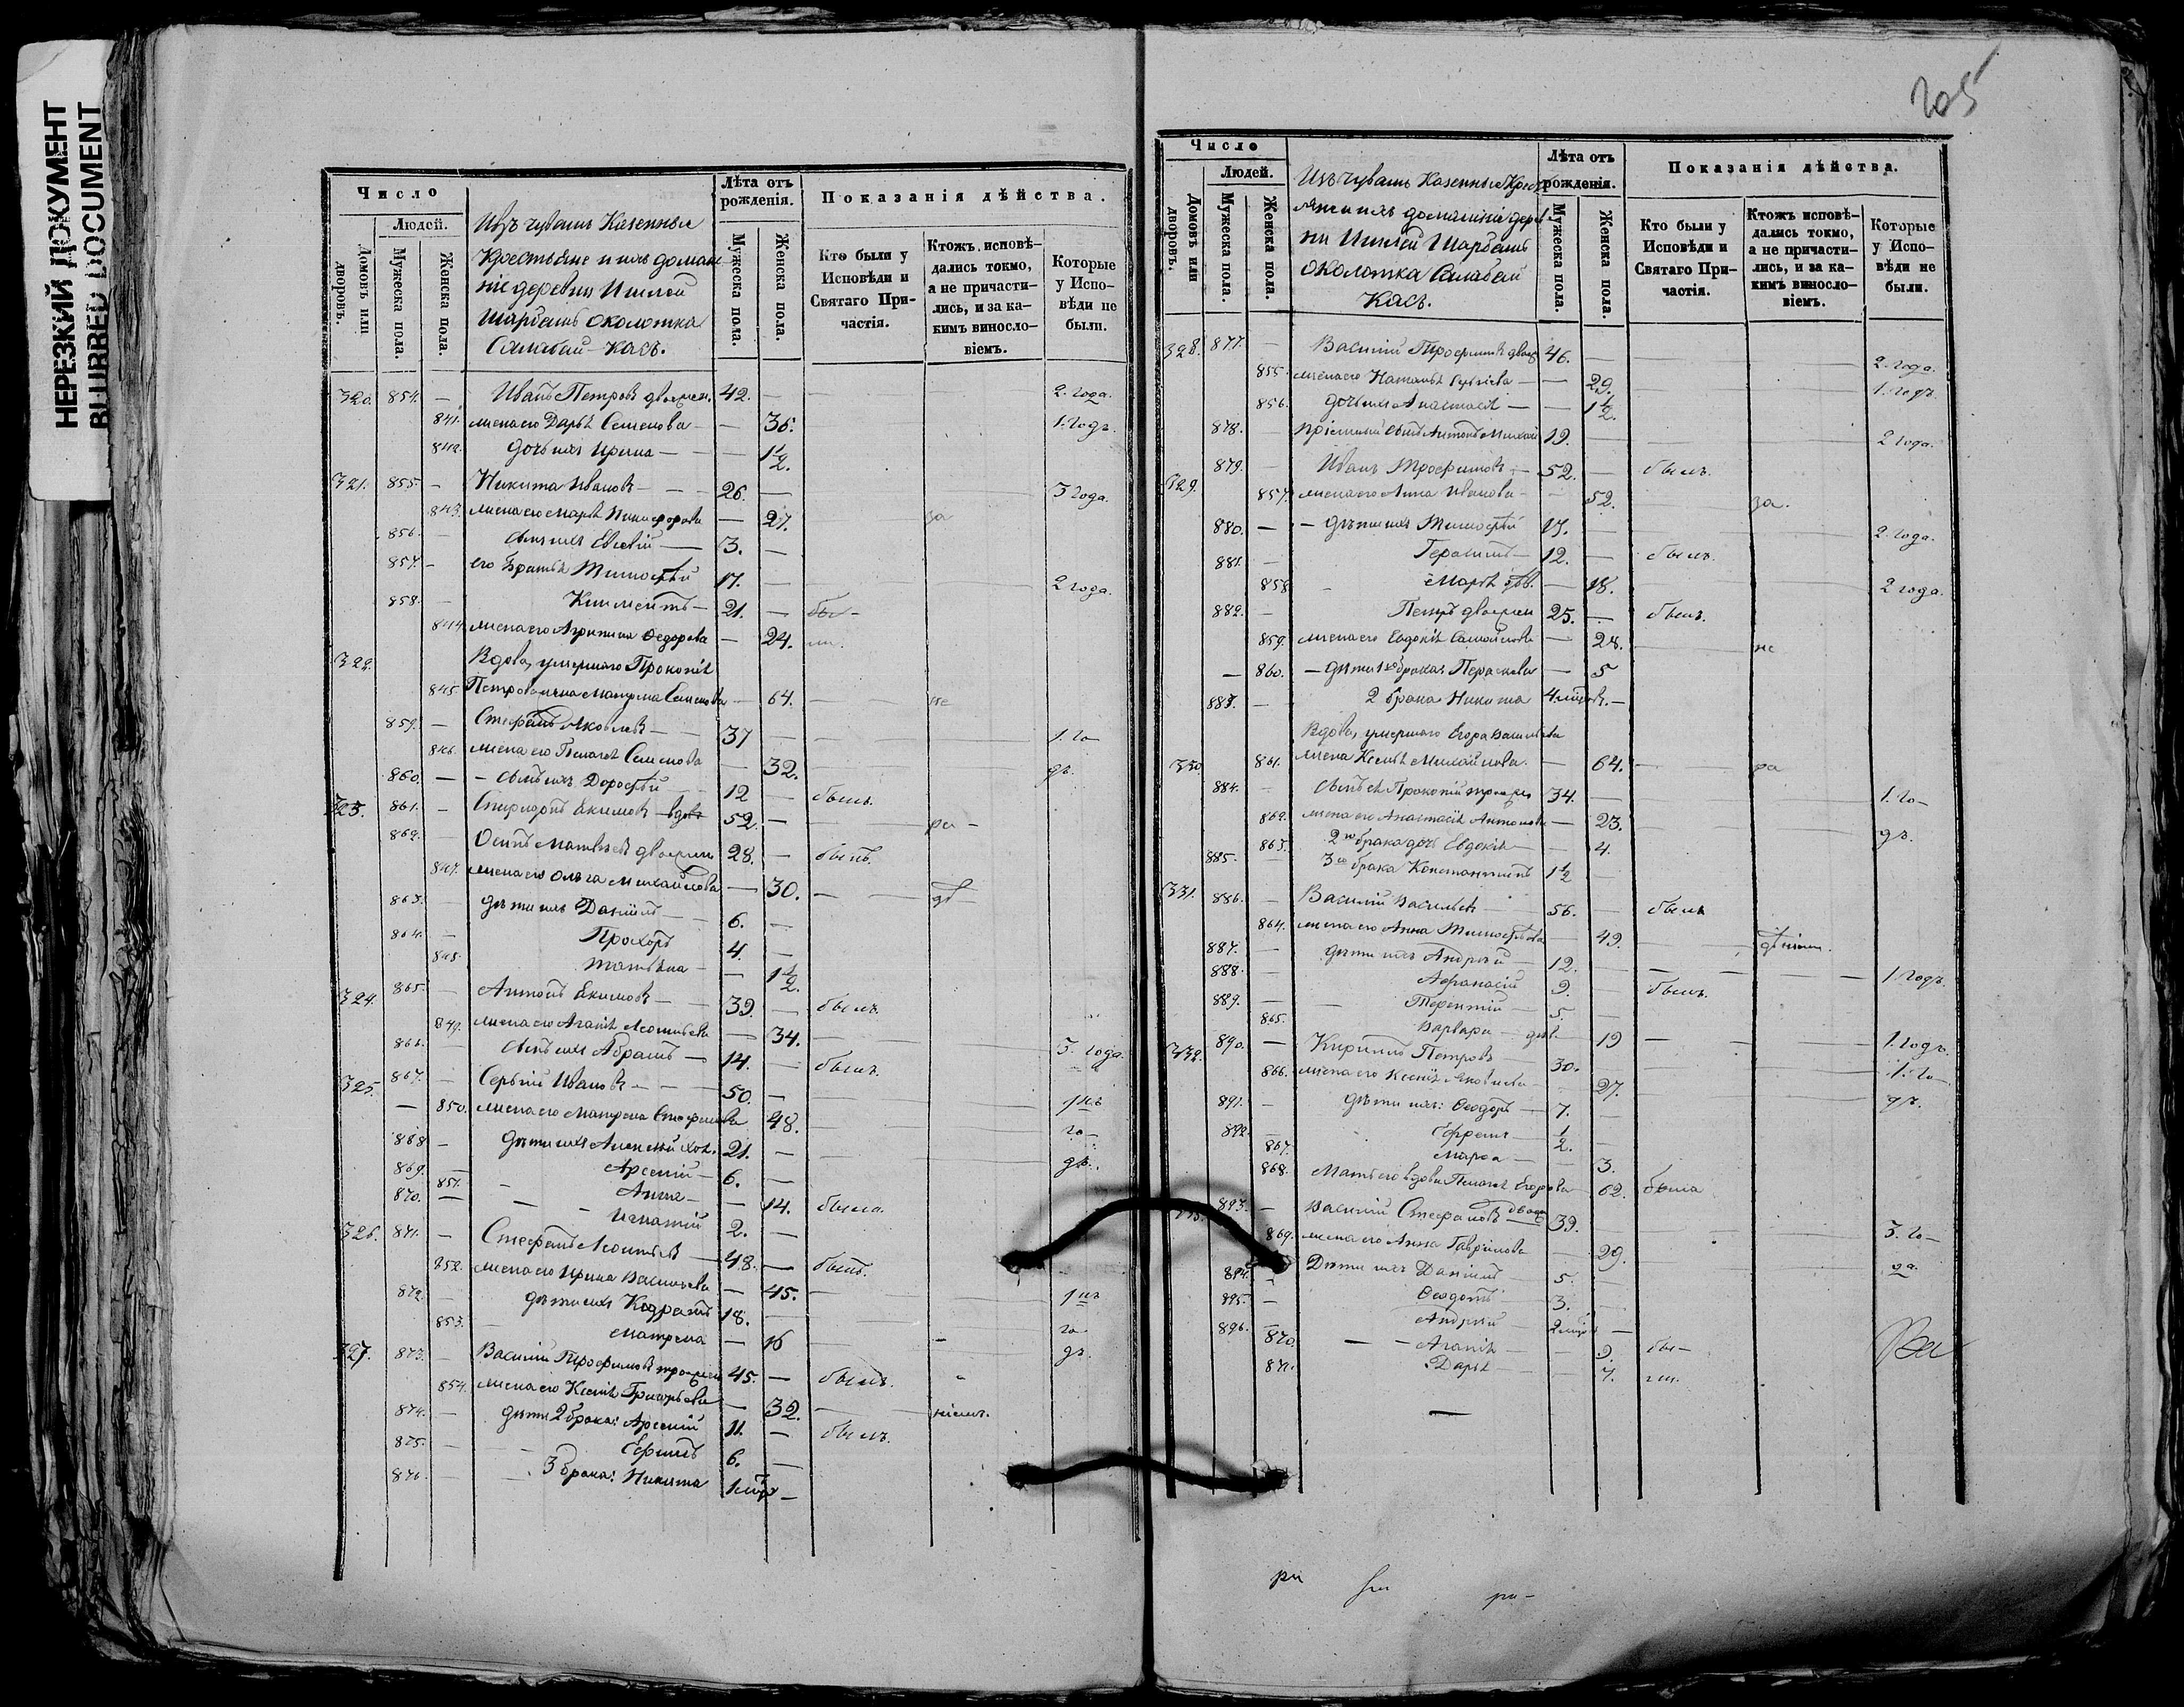 НЕРЕЗКИЙ ДОКУМЕНТ
BLURRED DOCUMENT
Число
Людей.
Домовъ или дворовъ.
Мужеска пола.
Женска пола.
Изъ чувашъ Казенные
Крестьяне и ихъ домаш-
ніе деревни Ишлей
Шарбашъ околотка
Касъ.
Лѣта отъ рожденія.
Мужеска пола.
Женска пола.
Показанія дѣйства.
Кто были у Исповѣди и Святаго При-частія.
Ктожъ исповѣ-дались токмо, а не причасти-лись, и за ка-кимъ винесло-віемъ.
Которые у Испо-вѣди не были.
320. 854. — Иванъ Петровъ двоежен. 42. — 2. года.
841. жена его Дарья Семенова — 36. 1. годъ.
842. дочь ихъ Ирина — 1 1/2.
321. 855. — Никита Ивановъ — 26. — 3 года.
843. жена его Марья Никифорова — 27. за
856. — сынъ ихъ Евсевій — 3. —
857. — его братья Тимофей 17. — 2 года.
858. — Климентъ — 21. — бы-
844. жена его Агрипина Федорова — 24. ли.
322. Вдова, умершаго Прокопія
845. Петрова жена Матрена Семенова — 64. — не
859. — Стефанъ Яковлевъ — 37 — 1. го-
846. жена его Пелагея Семенова — 32. дъ.
860. — сынъ ихъ Дорофей 12 — былъ.
323. 861. — Спиридонъ Екимовъ вдов 52. — ра-
862. — Осипъ Матвеевъ двоежен 28. — былъ.
847. жена его Ольга Михайлова — 30. —
863. — дѣти ихъ Даніилъ — 6. —
864. — Прохоръ 4. —
848. Татьяна — 1 1/2.
324. 865. — Антонъ Екимовъ — 39. — былъ.
849. жена его Агафія Леонтьева — 34. 3. года.
866. — сынъ ихъ Абрамъ — 14. — былъ.
325. 867. — Сергѣй Ивановъ — 50. —
850. жена его Матрена Стефанова 48. го-
868 — дѣти ихъ Алексѣй хол. 21. — дъ.
869. — Арсеній — 6. —
851. Анна — 14. была.
870. — Игнатій 2. —
326. 871. — Стефанъ Леонтьевъ — 48. — былъ.
852. жена его Ирина Васильева — 45.
872. — дѣти ихъ Кодратъ 18. — го-
853. Матрена — 16 дъ.
327. 873. — Василій Трофимовъ троежен 45. — былъ.
854. жена его Ксенія Григорьева — 32. — ніемъ.
874. — дѣти 2 брака: Арсеній 11. — былъ.
875. — Ефимъ 6. —
876. — 3 брака: Никита 1 мѣс —
205
Число
Людей.
Домовъ или дворовъ.
Мужеска пола.
Женска пола.
Изъ чувашъ Казенные Крест
яне и ихъ домашніе дерев
ни Ишлей Шарбашъ
околотка
Касъ.
Лѣта отъ рожденія.
Мужеска пола.
Женска пола.
Показанія дѣйства.
Кто были у Исповѣди и Святаго При-частія.
Ктожъ исповѣ-дались токмо, а не причасти-лись, и за ка-кимъ винесло-віемъ.
Которые у Испо-вѣди не были.
328. 877. — Василій Трофимовъ двоеж 46. — 2. года.
855. жена его Наталья — 29. 1. годъ.
856. дочь ихъ Анастасія — 1 1/2.
878. — пріемный сынъ Антонъ Михай 19. — 2 года.
329. 879. — Иванъ Трофимовъ — 52. — былъ.
857. жена его Анна Иванова — 52. за.
880. — дѣти ихъ Тимофей 17. — 2. года.
881. — Герасимъ — 12. — былъ.
858. Марья дѣв. — 18. 2 года.
882. — Петръ двоежен 25. — былъ.
859. жена его Евдокія Самойлова — 28. не
860. дѣти 1го брака: Параскева — 5
883. — 2 брака Никита 4 мѣсяц. —
Вдова, умершаго Егора Васильева
330. 861. жена Ксенія Михайлова — 64. ра
884. — сынъ ея Прокопій троежен 34. — 1. го-
862. жена его Анастасія Антонова — 23. дъ.
863. 2го брака дочь Евдокія — 4.
885. — 3го брака Константинъ 1 1/2 —
331. 886. — Василій Васильевъ 56. — былъ
864. жена его Анна Тимофеева — 49.
887. — дѣти ихъ Андрей — 12. — 1 годъ.
888. — Афанасій 9. — былъ.
889. — Терентій — 5. —
865. Варвара — дѣв. — 19 — 1. годъ.
332. 890. — Кирилъ Петровъ 30. — 1. го-
866. жена его Ксенія Яковлева 27. дъ.
891. — дѣти ихъ: Феодоръ — 7. —
892. — Ефремъ — 1/2. —
867. Марфа — 3.
868. Мать его вдова Пелагея Егорова 62. была
333. 893. — Василій Стефановъ двоеж 39. — 3. го-
869. жена его Анна Гаврилова 29. да.
894. — Дѣти ихъ Даніилъ 5. —
895. — Феодотъ 3. —
896. — Андрей — 2 мѣс —
870. Агафія — 9. бы-
871. Дарья — 7. ли.
ра
ра-